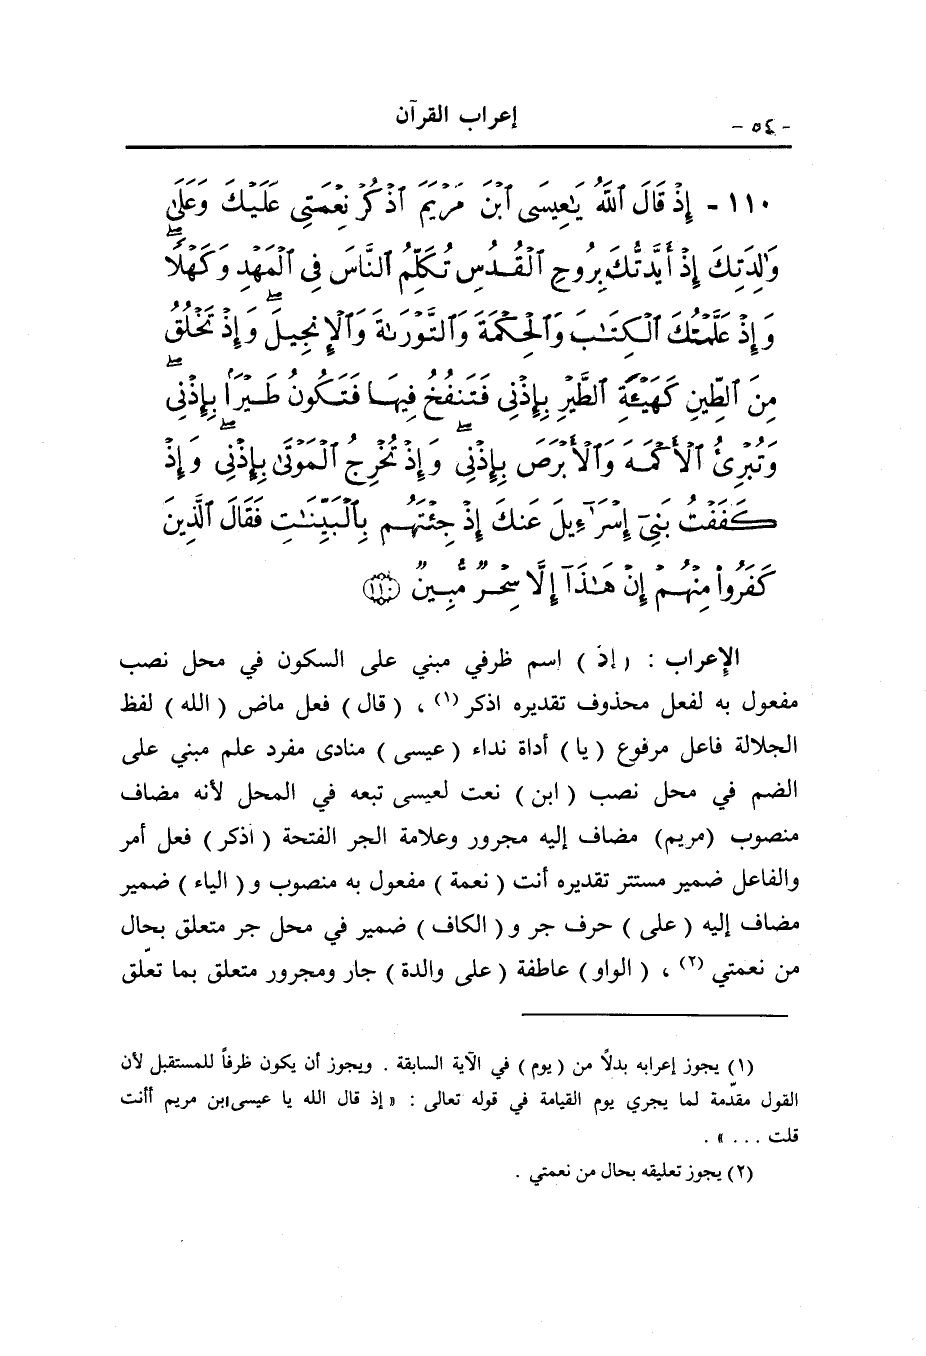 - ٥٤ -
إعراب القرآن
١١٠ - إِذْ قَالَ ٱللَّهُ يَـٰعِيسَى ٱبْنَ مَرْيَمَ ٱذْكُرْ نِعْمَتِى عَلَيْكَ وَعَلَىٰ
وَٰلِدَتِكَ إِذْ أَيَّدتُّكَ بِرُوحِ ٱلْقُدُسِ تُكَلِّمُ ٱلنَّاسَ فِى ٱلْمَهْدِ وَكَهْلًا ۖ
وَإِذْ عَلَّمْتُكَ ٱلْكِتَـٰبَ وَٱلْحِكْمَةَ وَٱلتَّوْرَىٰةَ وَٱلْإِنجِيلَ ۖ وَإِذْ تَخْلُقُ
مِنَ ٱلطِّينِ كَهَيْـَٔةِ ٱلطَّيْرِ بِإِذْنِى فَتَنفُخُ فِيهَا فَتَكُونُ طَيْرًۢا بِإِذْنِى ۖ
وَتُبْرِئُ ٱلْأَكْمَهَ وَٱلْأَبْرَصَ بِإِذْنِى ۖ وَإِذْ تُخْرِجُ ٱلْمَوْتَىٰ بِإِذْنِى ۖ وَإِذْ
كَفَفْتُ بَنِىٓ إِسْرَٰٓءِيلَ عَنكَ إِذْ جِئْتَهُم بِٱلْبَيِّنَـٰتِ فَقَالَ ٱلَّذِينَ
كَفَرُوا۟ مِنْهُمْ إِنْ هَـٰذَآ إِلَّا سِحْرٌ مُّبِينٌ ﴿١١٠﴾
الإعراب : ( إذ ) اسم ظرفي مبني على السكون في محل نصب
مفعول به لفعل محذوف تقديره اذكر (١) ، ( قال ) فعل ماض ( الله ) لفظ
الجلالة فاعل مرفوع ( يا ) أداة نداء ( عيسى ) منادى مفرد علم مبني على
الضم في محل نصب ( ابن ) نعت لعيسى تبعه في المحل لأنه مضاف
منصوب (مريم) مضاف إليه مجرور وعلامة الجر الفتحة ( اذكر ) فعل أمر
والفاعل ضمير مستتر تقديره أنت ( نعمة ) مفعول به منصوب و ( الياء ) ضمير
مضاف إليه ( على ) حرف جر و ( الكاف ) ضمير في محل جر متعلق بحال
من نعمتي (٢) ، ( الواو ) عاطفة ( على والدة ) جار ومجرور متعلق بما تعلّق
(١) يجوز إعرابه بدلاً من ( يوم ) في الآية السابقة . ويجوز أن يكون ظرفاً للمستقبل لأن
القول مقدّمة لما يجري يوم القيامة في قوله تعالى : « إذ قال الله يا عيسى ابن مريم أأنت
قلت ... » .
(٢) يجوز تعليقه بحال من نعمتي .